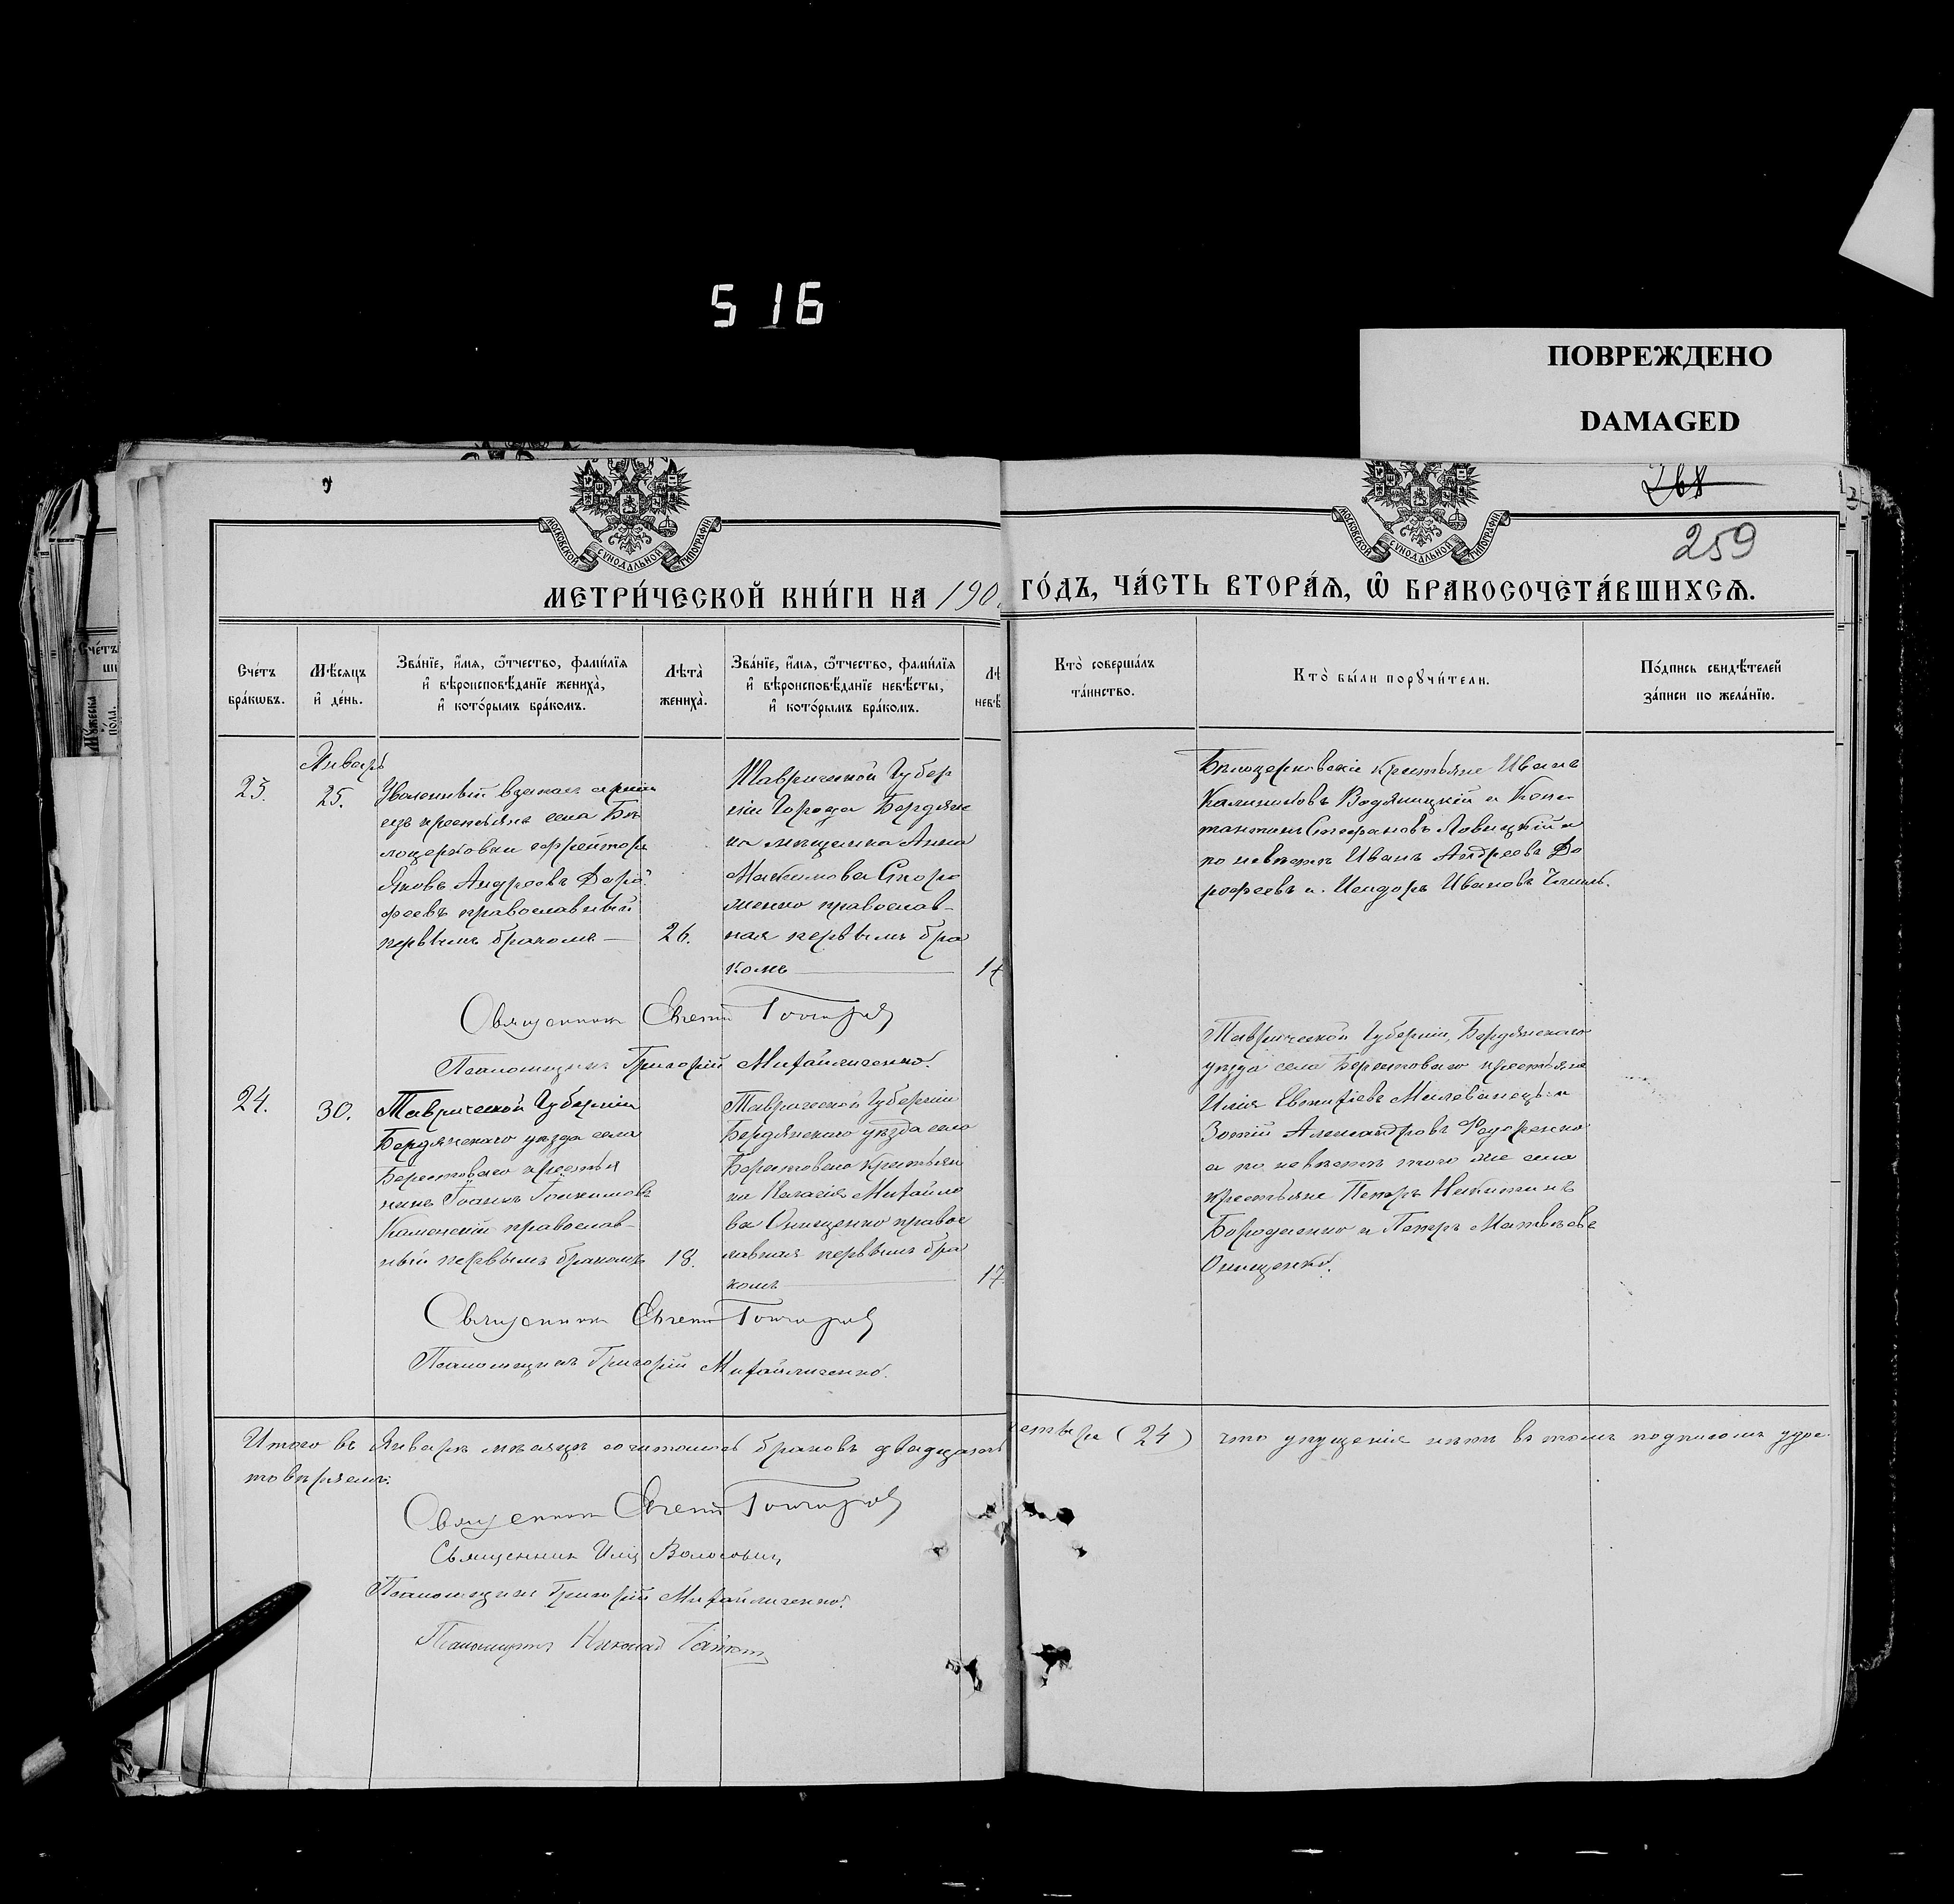 516
ПОВРЕЖДЕНО
DAMAGED
268
259
МОСКОВСКОЙ СУНОДАЛЬНОЙ ТИПОГРАФІИ
МОСКОВСКОЙ СУНОДАЛЬНОЙ ТИПОГРАФІИ
МЕТРИ́ЧЕСКОЙ КНИ́ГИ НА 190
ГО́ДЪ, ЧА́СТЬ ВТОРА́Ѧ, Ѽ БРАКОСОЧЕТА́ВШИХСѦ.
Сче́тъ
бра́кѡвъ.
Мѣ́сяцъ
и҆ де́нь.
Зва́нїе, и҆́мѧ, ѻ҆́тчество, фами́лїѧ
и҆ вѣроисповѣ́данїе жениха̀,
и҆ кото́рымъ бра́комъ.
Лѣта̀
жениха̀.
Зва́нїе, и҆́мѧ, ѻ҆́тчество, фами́лїѧ
и҆ вѣроисповѣ́данїе невѣ́сты,
и҆ кото́рымъ бра́комъ.
Лѣ
невѣ
Кто̀ соверша́лъ
та́инство.
Кто̀ бы́ли порꙋчи́тели.
По́дпись свидѣ́телей
за́писи по жела́нїю.
Январь
23.
25.
Уволенный в запас арміи
изъ крестьянъ села Бѣ
лоцерковки ефрейторъ
Яковъ Андреевъ Доро
феевъ православный
первымъ бракомъ
26.
Таврической Губер
ніи Города Бердянс
ка мѣщанка Анна
Максимова Скоро
православ-
ная первымъ бра
комъ
1
Бѣлоцерковскіе крестьяне Иванъ
Калиниковъ Водяницкій и Конс-
тантинъ Стефановъ Явицкій и
по невѣстѣ Иванъ Андреевъ До
рофеевъ и Исидоръ Ивановъ
Священникъ Евгеній
Псаломщикъ Григорій Михайличенко.
24.
30.
Таврической Губерніи
Бердянскаго уѣзда села
Берестоваго крестья
нинъ Іоаннъ Іоакимовъ
Каменскій православ-
ный первымъ бракомъ
18.
Таврической Губерніи
Бердянскаго уѣзда села
Берестоваго крестьян
ка Пелагія Михайло
ва Онищенко правос
лавная первымъ бра
комъ
17
Таврической Губерніи, Бердянскаго
уѣзда села Берестоваго крестьяне
Илія Милованецъ и
Зотій Александровъ Федоренко
а по невѣстѣ того же села
крестьяне Петръ Никитинъ
Бороденко и Петръ Матвѣевъ
Онищенко.
Священникъ Евгеній
Псаломщикъ Григорій Михайличенко.
Итого въ Январѣ мѣсяцѣ состоялось браковъ двадцать
четыре (24) что упущенія нѣтъ въ томъ подписомъ удос
товѣряемъ.
Священникъ Евгеній
Священник Илія Волосович
Псаломщикъ Григорій Михайличенко.
Псаломщикъ Николай